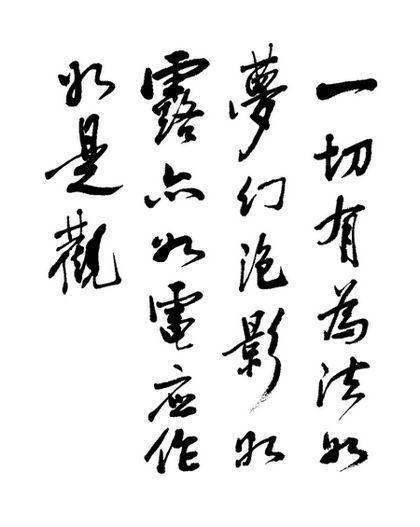 一切有為法如
夢幻泡影如
露亦如電應作
如是觀